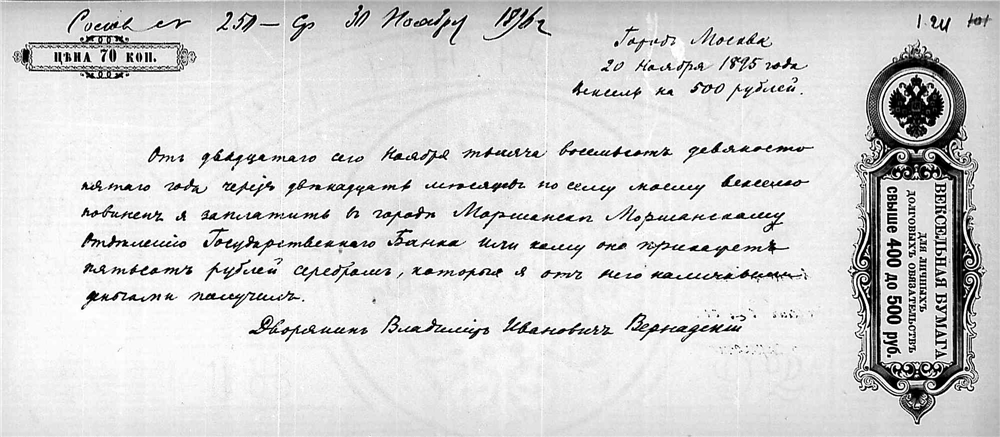 250 — ср 30 Ноября 1896 г
1.24
ЦѢНА 70 КОП.
Городъ Москва
20 ноября 1895 года
Вексель на 500 рублей.
Отъ двадцатаго сего ноября тысяча восемьсотъ девяносто
пятаго года черезъ двѣнадцать мѣсяцевъ по сему моему векселю
повиненъ я заплатить въ городѣ Моршанскѣ Моршанскому
Отдѣленію Государственнаго Банка или кому оно прикажетъ
пятьсотъ рублей серебромъ, которые я отъ него наличными
деньгами получилъ.
Дворянинъ Владиміръ Ивановичъ Вернадскій
ВЕКСЕЛЬНАЯ БУМАГА
ДЛЯ ЛИЧНЫХЪ
ДОЛГОВЫХЪ ОБЯЗАТЕЛЬСТВЪ
СВЫШЕ 400 ДО 500 РУБ.